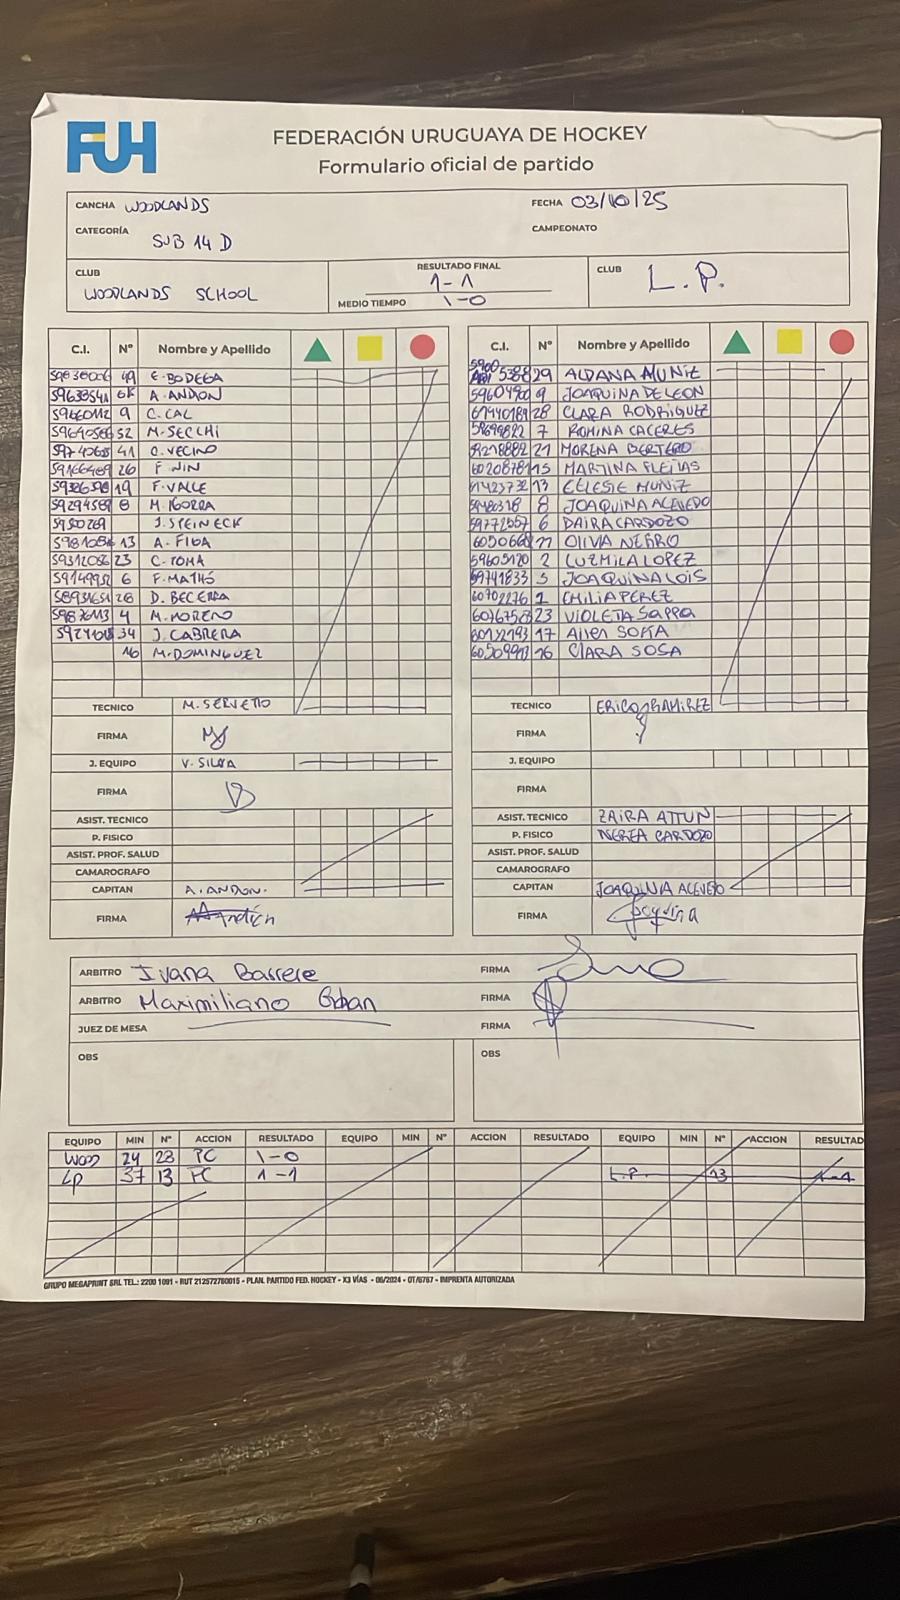 FUH
FEDERACIÓN URUGUAYA DE HOCKEY
Formulario oficial de partido
CANCHA WOODLANDS FECHA 03/10/25
CATEGORÍA SUB 14 D CAMPEONATO
CLUB WOODLANDS SCHOOL RESULTADO FINAL 1-1 CLUB L.P.
MEDIO TIEMPO 1-0
C.I. N° Nombre y Apellido
49 E. BODEGA
A. ANDON
9 C. CAL
52 M. SECCHI
41 C. VECINO
26 F. WIN
19 F. VALLE
8 M. IGORRA
J. STEINECK
13 A. FIGA
23 C. TOMA
6 F. MATHÓ
28 D. BECERRA
4 M. MORENO
34 J. CABRERA
16 M. DOMINGUEZ
TECNICO M. SERVETTO
FIRMA
J. EQUIPO V. SILVA
FIRMA
ASIST. TECNICO
P. FISICO
ASIST. PROF. SALUD
CAMAROGRAFO
CAPITAN A. ANDON.
FIRMA
C.I. N° Nombre y Apellido
29 ALDANA MUNIZ
9 JOAQUINA DE LEON
28 CLARA RODRIGUEZ
7 ROMINA CACERES
21 MORENA BERTERO
15 MARTINA FLEITAS
13 CELESTE MUNIZ
8 JOAQUINA ACEVEDO
59772557 6 DAIRA CARDOZO
11 OLIVIA NEGRO
59605120 2 LUZMILA LOPEZ
59741833 5 JOAQUINA LOIS
60702276 1 EMILIA PEREZ
23 VIOLETA Sappa
17 Ailen SOSA
16 CLARA SOSA
TECNICO ERICO RAMIREZ
FIRMA
J. EQUIPO
FIRMA
ASIST. TECNICO ZAIRA ATTUN
P. FISICO NEREA CARDOZO
ASIST. PROF. SALUD
CAMAROGRAFO
CAPITAN JOAQUINA ACEVEDO
FIRMA Joaquina
ARBITRO Ivana Barrere FIRMA
ARBITRO Maximiliano FIRMA
JUEZ DE MESA FIRMA
OBS OBS
EQUIPO MIN N° ACCION RESULTADO EQUIPO MIN N° ACCION RESULTADO EQUIPO MIN N° ACCION RESULTAD
WOOD 24 23 PC 1-0
LP 37 13 PC 1-1 L.P. 13 1-1
GRUPO MEGAPRINT SRL TEL.: 2200 1091 - RUT 212572780015 - PLAN. PARTIDO FED. HOCKEY - X3 VÍAS - 06/2024 - OT/6767 - IMPRENTA AUTORIZADA